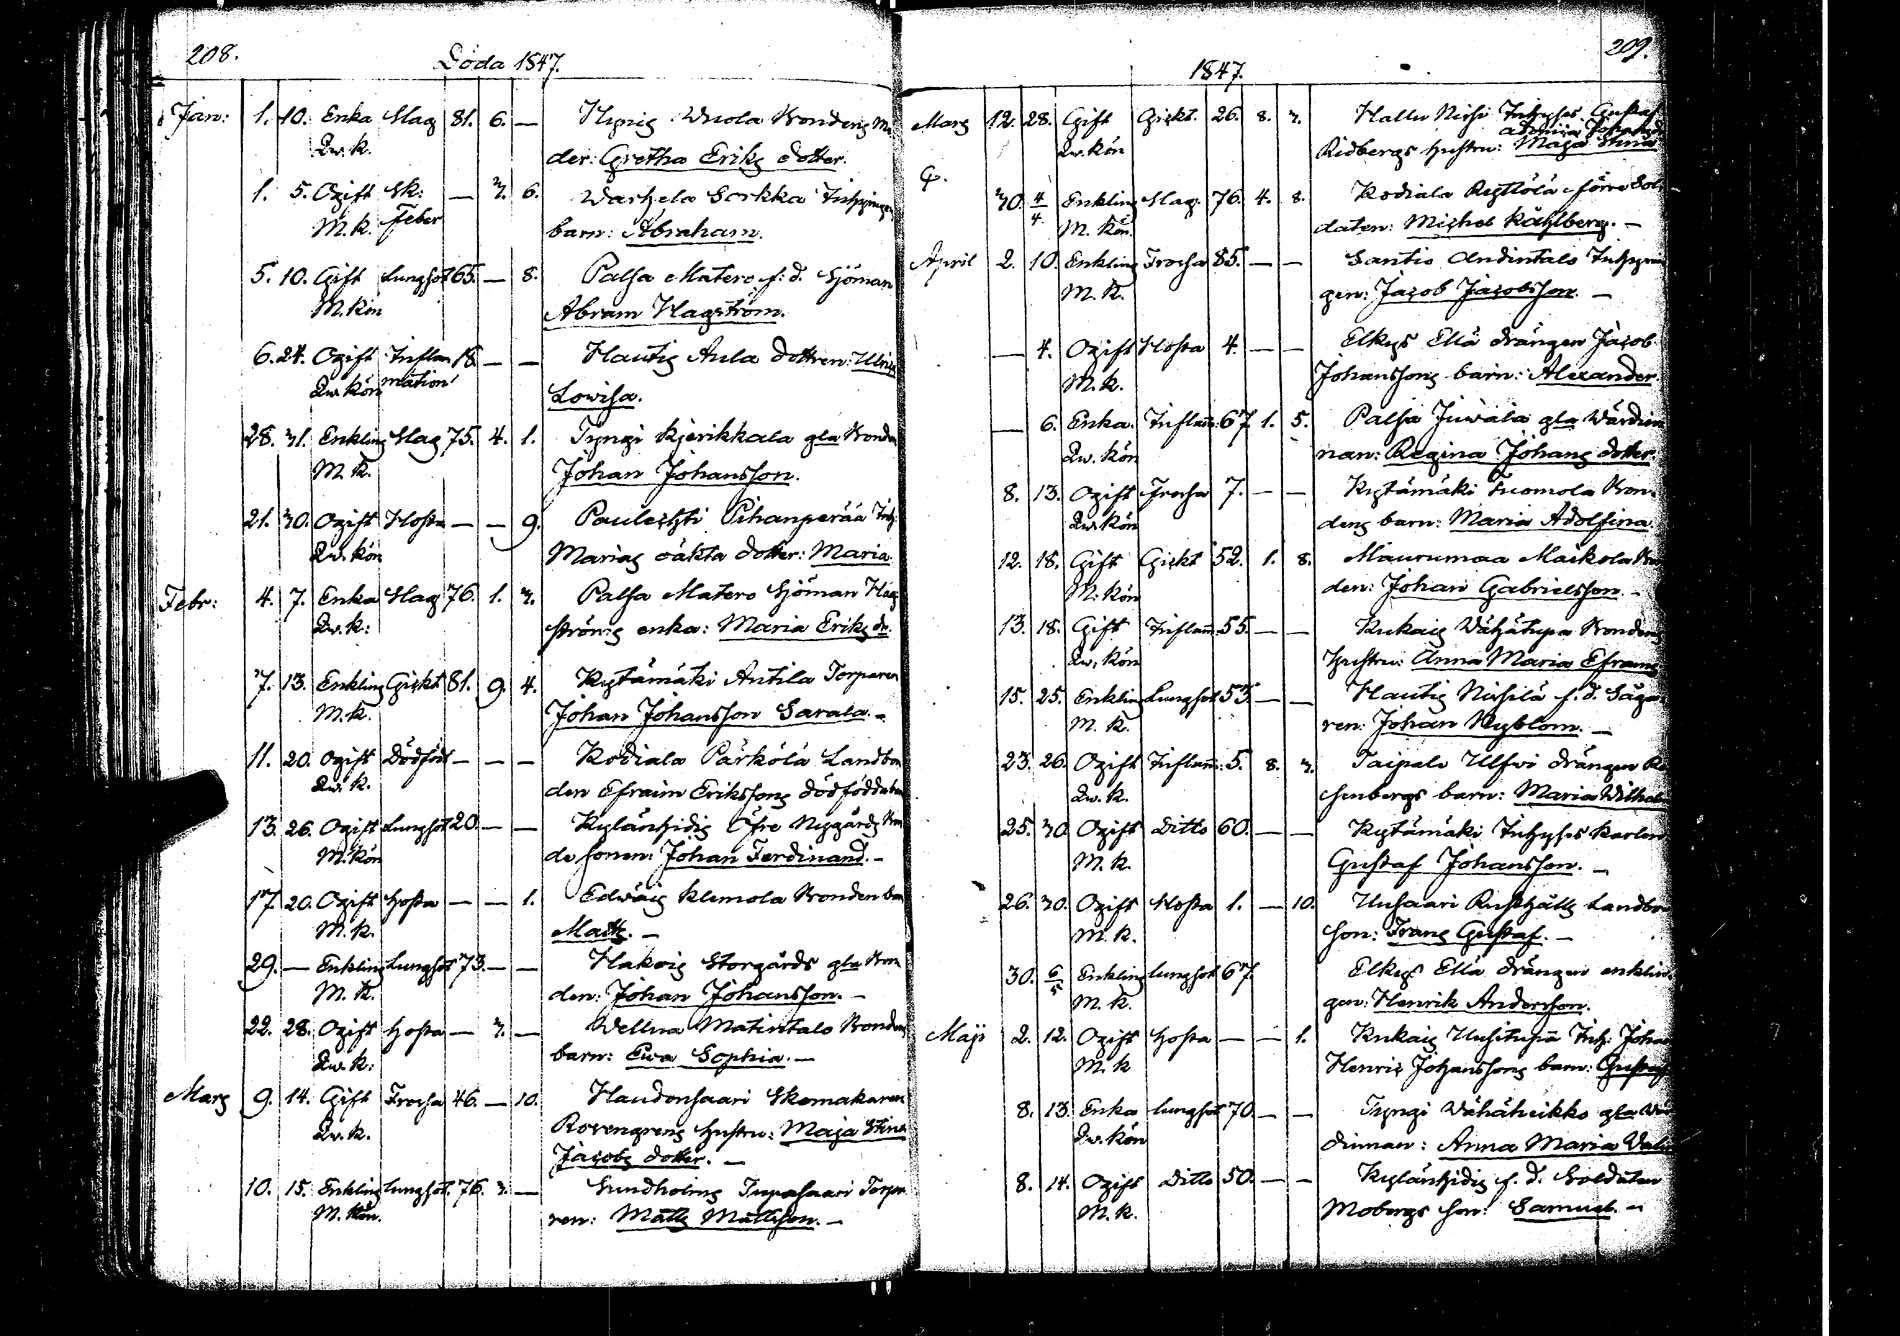 208.
Döda 1847.
Jan: 1. 10. Enka Slag 81. 6. — Hypis Wuola Bonden
Qw. k. der: Gretha Eriks dotter.
1. 5. Ogift Sk: — 3. 6. Warhela Sorkka
M. k. Feber barn: Abraham.
5. 10. Gift Lungsot 65. — 8. Palsa Matero f: d. Sjöman
M. Kön Abram Hagström.
6. 24. Ogift Inflam 18. — — Hautis Anla dottren: Ulrica
Qw. Kön mation Lowisa.
28. 31. Enkling Slag 75. 4. 1. Tyngi Kjerikkala gla Bonden
M. k. Johan Johansson.
21. 30. Ogift Hosta — — 9. Pauleishti Pihanperää Inh:
Qw. Kön Marias oäkta dotter: Maria
Febr: 4. 7. Enka Slag 76. 1. 3. Palsa Matero Sjöman Hag
Qw. k: ströms enka: Maria Eriks do
7. 13. Enkling Gickt 81. 9. 4. Kytämäki Antila Torparen
M. k. Johan Johansson Sarala. —
11. 20. Ogift Dödfödt — — — Kodiala Pärkölä Landbon
Qw. k. den Efraim Erikssons dödfödda
13. 26. Ogift Lungsot 20. — — Kylänhidis Öfre Nygårds Bon
M. Kön de sonen: Johan Ferdinand. —
17. 20. Ogift Hosta — — 1. Edväis Klemola Bonden barn
M. k. Matts. —
29. — Enkling Lungsot 73. — — Hakois Storgårds gla Bon
M. k. den: Johan Johansson. —
22. 28. Ogift Hosta — 3. — Wellua Matintalo Bonden
Qw. k: barn: Ewa Sophia. —
Mars 9. 14. Gift Frossa 46. — 10. Haudonsaari Skomakaren
Qw. k. Rosengrens hustru: Maja Stina
Jacobs dotter. —
10. 15. Enkling Lungsot. 76. 3. — Sundholms Tupasaari Torpa
M. Kön. ren: Matts Mattsson. —
209.
1847.
Mars 12. 28. Gift Gickt. 26. 8. 3. Hallu Nissi Inhyses Gustaf
Qw. Kön Ridbergs hustru: Maja Stina
30. 4/4. Enkling Slag. 76. 4. 8. Kodiala Rystölä förre Sol
M. Kön daten: Michel Kåhlberg. —
April 2. 10. Enkling Frossa 85. — — Santio Andintalo
M. K. gen: Jacob Jacobsson. —
— 4. Ogift Hosta 4. — — Elkys Ellä drängen Jacob
M. k. Johanssons barn: Alexander.
— 6. Enka. Inflam: 67 1. 5. Palsa Juwala gla Wärdin
Qw. Kön nan: Regina Johans dotter.
8. 13. Ogift Frossa 7. — — Kytämäki Tuomola Bon
Qw. Kön dens barn: Maria Adolfina.
12. 18. Gift Gickt 52. 1. 8. Maurumaa Maikola Bon
M: Kön den: Johan Gabrielsson. —
13. 18. Gift Inflam: 55. — — Kukais Vähätupa Bondens
Qw. Kön hustru: Anna Maria Efraims
15. 25. Enkling Lungsot 53. — — Hautis Nissilä f. d. Säga
M. k. ren: Johan Nyblom. —
23. 26. Ogift Inflam: 5. 8. 3. Taipale Ulfwi drängen Ro
Qw. k. senbergs barn: Maria Wilhel
25. 30. Ogift Ditto 60. — — Kytämäki Inhyses karlen
M. k. Gustaf Johansson. —
26. 30. Ogift Hosta 1. — 10. Uusaari Rusthålls Landbo
M. k. son: Frans Gustaf. —
30. 6/5 Enkling Lungsot 67. Elkys Ellä drängen enklin
M. k. gen: Henrik Andersson.
Maji 2. 12. Ogift Hosta — — 1. Kukais Uusitupa Inh: Johan
M. k Henric Johanssons barn: Gustaf
8. 13. Enka Lungsot 70. — — Tyngi Wähäheikko gla Wär
Qw. Kön dinnan: Anna Maria
8. 14. Ogift Ditto 50. — — Kylänhidis f. d. Soldaten
M. k. Mobergs son: Samuel. —